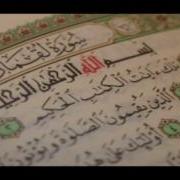 سُورَةُ لُقْمَان
بِسْمِ اللَّهِ الرَّحْمَٰنِ الرَّحِيمِ
ءَايَٰتُ الْكِتَٰبِ الْحَكِيمِ
الَّذِينَ يُقِيمُونَ الصَّلَوٰةَ وَيُؤْتُونَ
أُولَٰئِكَ عَلَىٰ